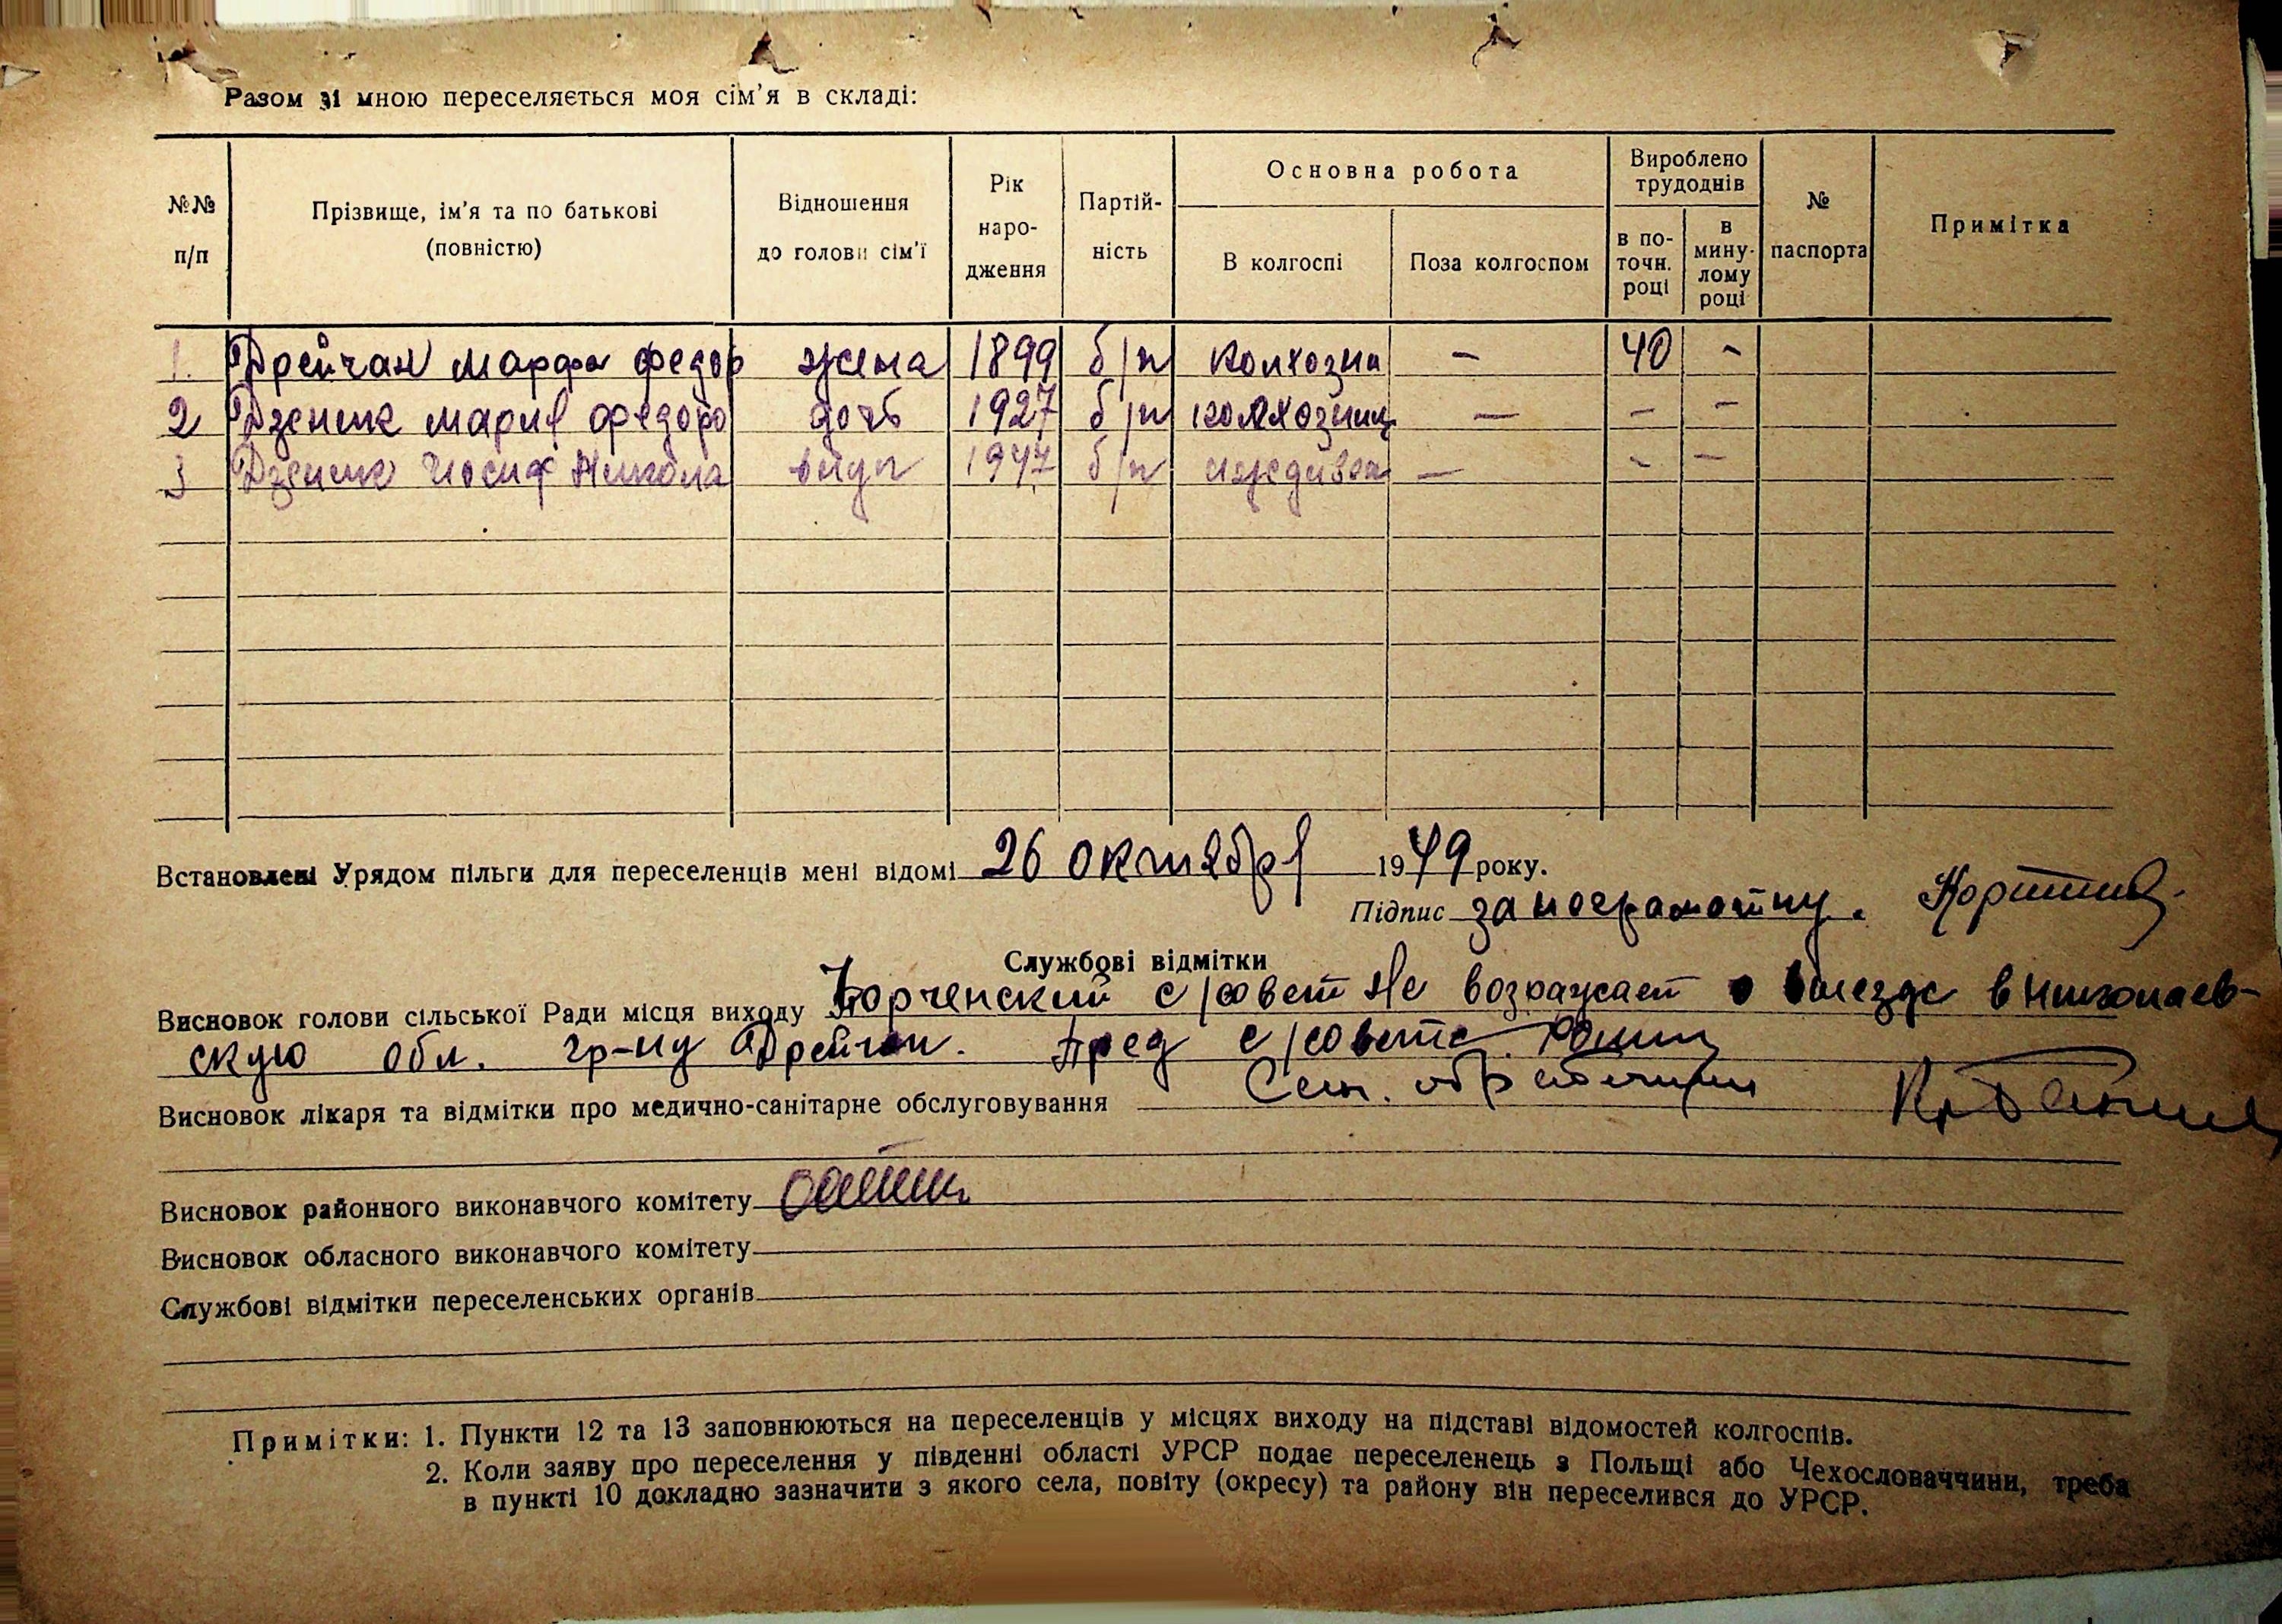 Разом зі мною переселяється моя сім'я в складі:
№№ п/п
Прізвище, ім'я та по батькові (повністю)
Відношення до голови сім'ї
Рік народження
Партійність
Основна робота
В колгоспі
Поза колгоспом
Вироблено трудоднів
в поточн. році
в минулому році
№ паспорта
Примітка
1. Дрейчан Марфа Федор жена 1899 б/п колхозни – 40 –
2 Дзеник Мария Федоро дочь 1927 б/п колхозниц – – –
3 Дзеник Иосиф Никола внук 1947 б/п иждивен – – –
Встановлені Урядом пільги для переселенців мені відомі 26 октября 1949 року.
Підпис за неграмотну.
Службові відмітки
Висновок голови сільської Ради місця виходу Борченский с/совет не возражает о выезде в Николаев-
скую обл. гр-ну Дрейчан. Пред с/совета
Висновок лікаря та відмітки про медично-санітарне обслуговування
Висновок районного виконавчого комітету
Висновок обласного виконавчого комітету
Службові відмітки переселенських органів
Примітки: 1. Пункти 12 та 13 заповнюються на переселенців у місцях виходу на підставі відомостей колгоспів.
2. Коли заяву про переселення у південні області УРСР подає переселенець з Польщі або Чехословаччини, треба
в пункті 10 докладно зазначити з якого села, повіту (окресу) та району він переселився до УРСР.